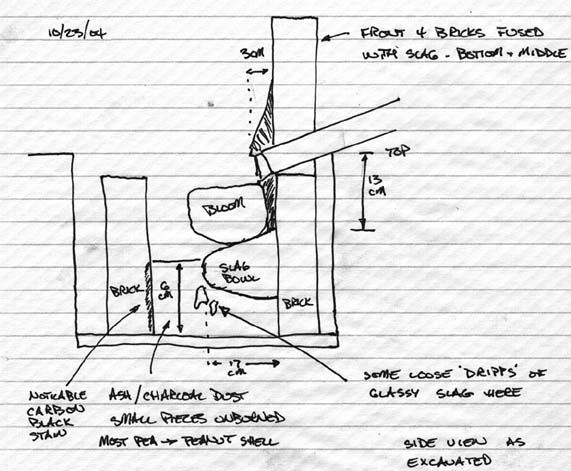 10/23/04
FRONT 4 BRICKS FUSED
WITH SLAG - BOTTOM + MIDDLE
3cm
TOP
13
CM
BLOOM
SLAG
BOWL
BRICK
6
CM
BRICK
17
CM
NOTICABLE
CARBON
BLACK
STAIN
ASH/CHARCOAL DUST
SMALL PIECES UNBURNED
MOST PEA → PEANUT SHELL
SOME LOOSE 'DRIPPS' OF
GLASSY SLAG HERE
SIDE VIEW AS
EXCAVATED